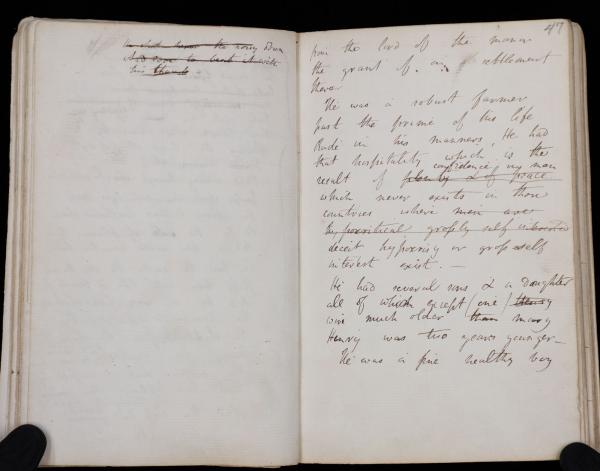 the noisy
to
his
47
from the lord of the manor
the grant of a settlement
there
He was a robust farmer
past the prime of his life
Rude in his manners, He had
that hospitality which is the
confidence in man
result of plenty & of peace
which never exists in those
countries where men are
hypocritical, grossly self interested
deceit hypocrisy or gross self
interest exist. —
He had several sons & a daughter
all of which except (one) Henry
were much older than mary
Henry was two years younger —
He was a fine healthy boy